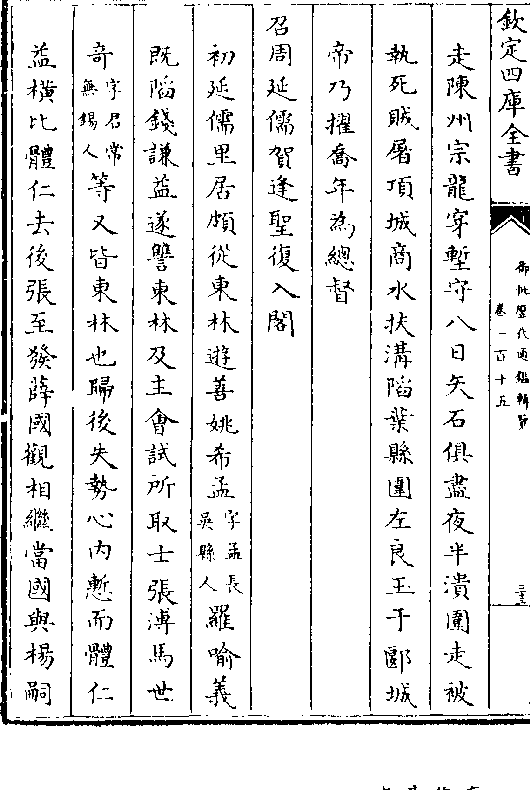 欽定四庫全書
御批歷代通鑑輯覽
卷一百十五
走陳州宗龍穿塹守八日矢石俱盡夜半潰圍走被
執死賊屠項城商水扶溝陷葉縣圍左良玉于郾城
帝乃擢喬年為總督
召周延儒賀逢聖復入閣
初延儒里居頗從東林遊善姚希孟字孟長吳縣人羅喻義
既陷錢謙益遂讐東林及主會試所取士張溥馬世
奇字君常無錫人等又皆東林也歸後失勢心内慙而體仁
益橫比體仁去後張至發薛國觀相繼當國與楊嗣